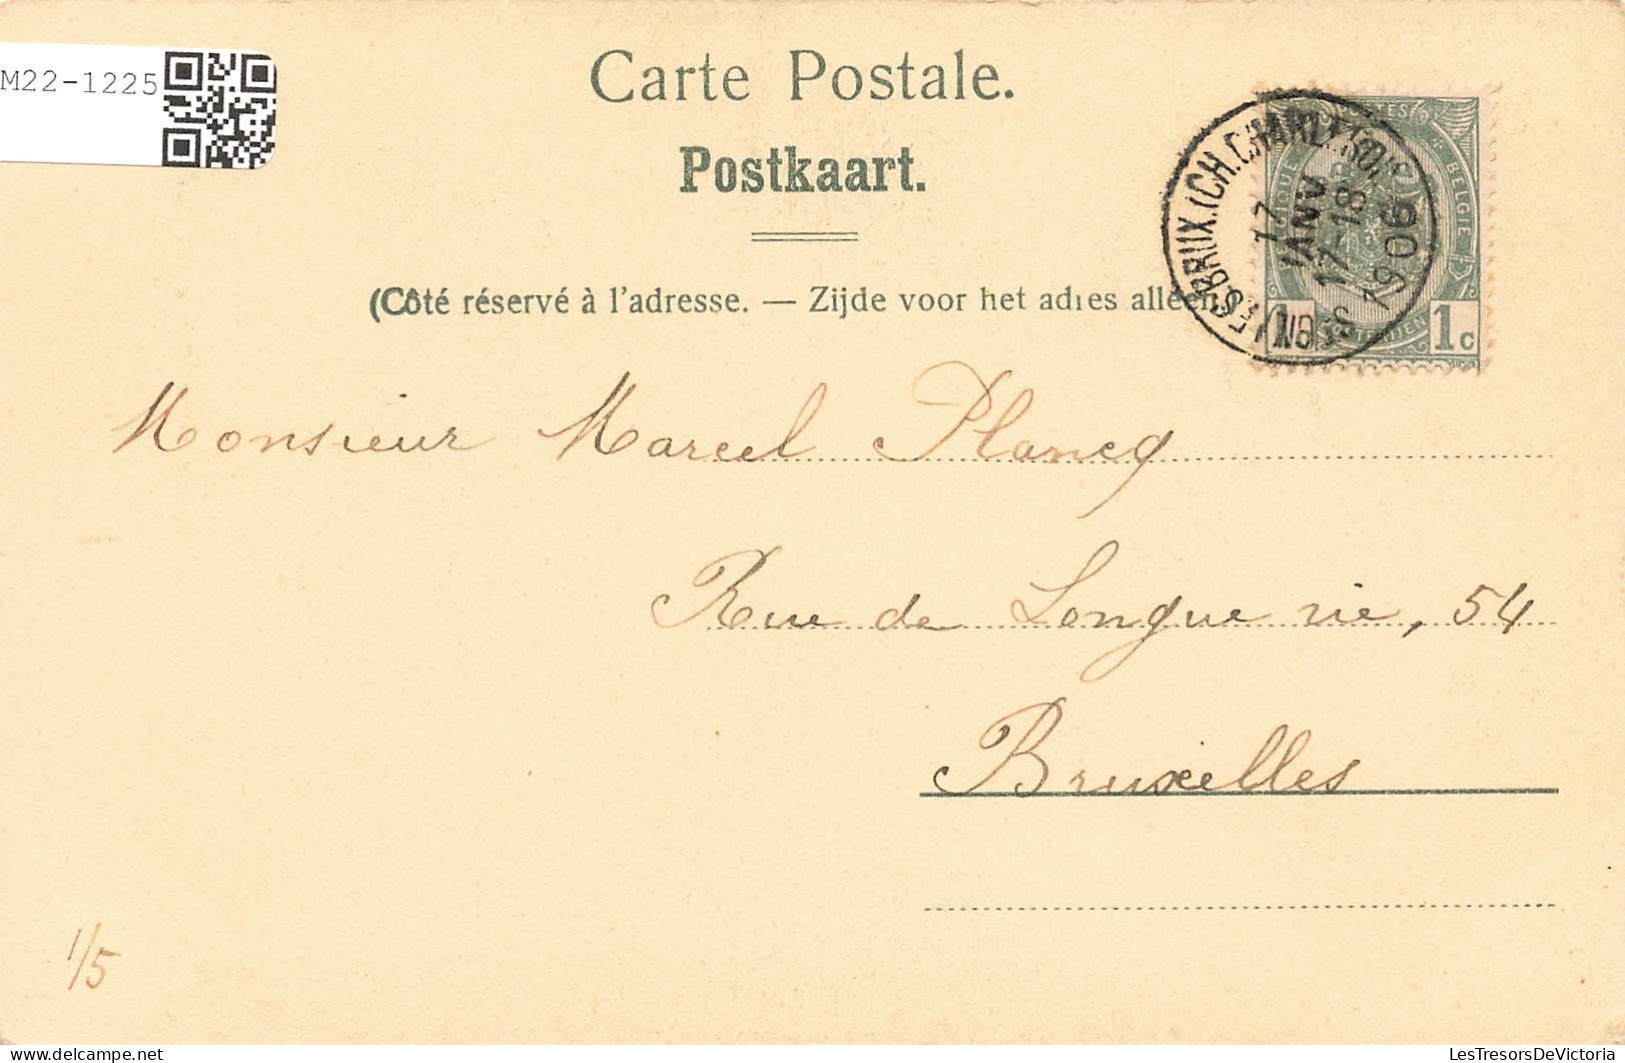 M22-1225
Carte Postale.
Postkaart.
(Côté réservé à l'adresse. — Zijde voor het adres alleen
BRUX. (CH. CHARLEROI)
17
JANV
17-18
1906
BELGIE
1c
Monsieur Marcel Plancq
Rue de Longue vie, 54
Bruxelles
1/5
LesTresorsDeVictoria